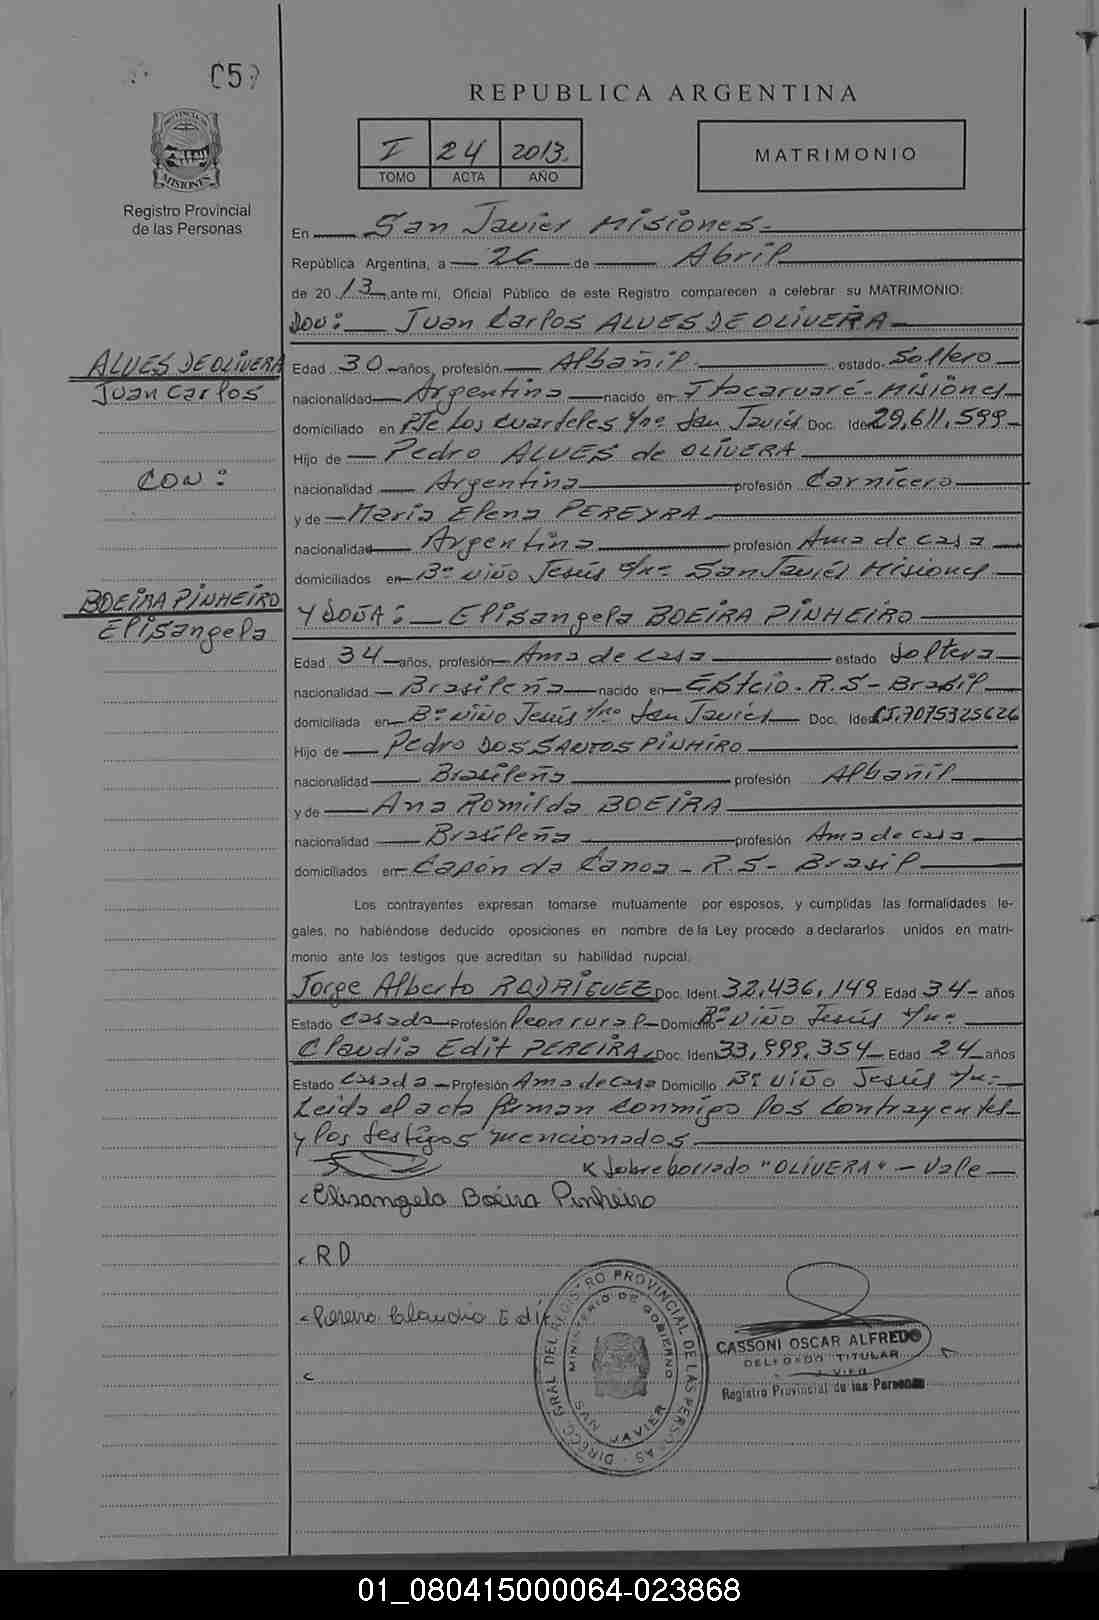 REPUBLICA ARGENTINA
PROVINCIA DE
MISIONES
Registro Provincial
de las Personas
I 24 2013.
TOMO ACTA AÑO
MATRIMONIO
En San Javier Misiones.
República Argentina, a 26 de Abril
de 2013 ante mí, Oficial Público de este Registro comparecen a celebrar su MATRIMONIO:
DON: Juan Carlos ALVES DE OLIVERA
ALVES DE OLIVERA
Juan Carlos
CON:
BOEIRA PINHEIRO
Elisangela
Edad 30 años, profesión Albañil estado Soltero
nacionalidad Argentina nacido en Itacaruaré - Misiones
domiciliado en Pje Los cuarteles s/nº San Javier Doc. Iden 29,611,599
Hijo de Pedro ALVES de OLIVERA
nacionalidad Argentina profesión Carnicero
y de Maria Elena PEREYRA
nacionalidad Argentina profesión Ama de casa
domiciliados en Bº Niño Jesús s/nº San Javier Misiones
Y DOÑA: Elisangela BOEIRA PINHEIRO
Edad 34 años, profesión Ama de casa estado soltera
nacionalidad Brasileña nacido en Esteio. R.S - Brasil
domiciliada en Bº Niño Jesús s/nº San Javier Doc. Iden CI.7075325626
Hijo de Pedro DOS SANTOS PINHIRO
nacionalidad Brasileña profesión Albañil
y de Ana Romilda BOEIRA
nacionalidad Brasileña profesión Ama de casa
domiciliados en Capón da Canoa - R.S - Brasil
Los contrayentes expresan tomarse mutuamente por esposos, y cumplidas las formalidades le-
gales, no habiéndose deducido oposiciones en nombre de la Ley procedo a declararlos unidos en matri-
monio ante los testigos que acreditan su habilidad nupcial.
Jorge Alberto RODRIGUEZ Doc. Ident. 32,436,149 Edad 34 años
Estado casado Profesión Peon rural Domicilio Bº Niño Jesús s/nº
Claudia Edit PEREIRA Doc. Iden 33,999,354 Edad 24 años
Estado casada Profesión Ama de casa Domicilio Bº Niño Jesús s/nº
Leida el acta firman conmigo los contrayentes
y los testigos mencionados
Sobreborrado "OLIVERA" - Vale
Elisangela Boeira Pinheiro
RD
Pereira Claudia Edit
DIRECC. GRAL. DEL REGISTRO PROVINCIAL DE LAS PERSONAS
MINISTERIO DE GOBIERNO
SAN JAVIER
CASSONI OSCAR ALFREDO
DELEGADO TITULAR
Registro Provincial de las Personas
01_080415000064-023868